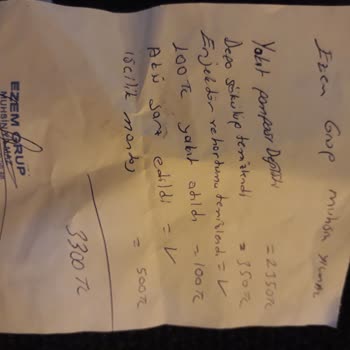 Ezem Grup muhsin
Yakıt pompası Değişti = 2350TL
Depo sökülüp temizlendi = 350TL
Enjektör rebortumu temizlendi = V
100 TL yakıt atıldı = 100TL
Akü şarj edildi = V
işçilik montaj = 500TL
3300TL
EZEM GRUP